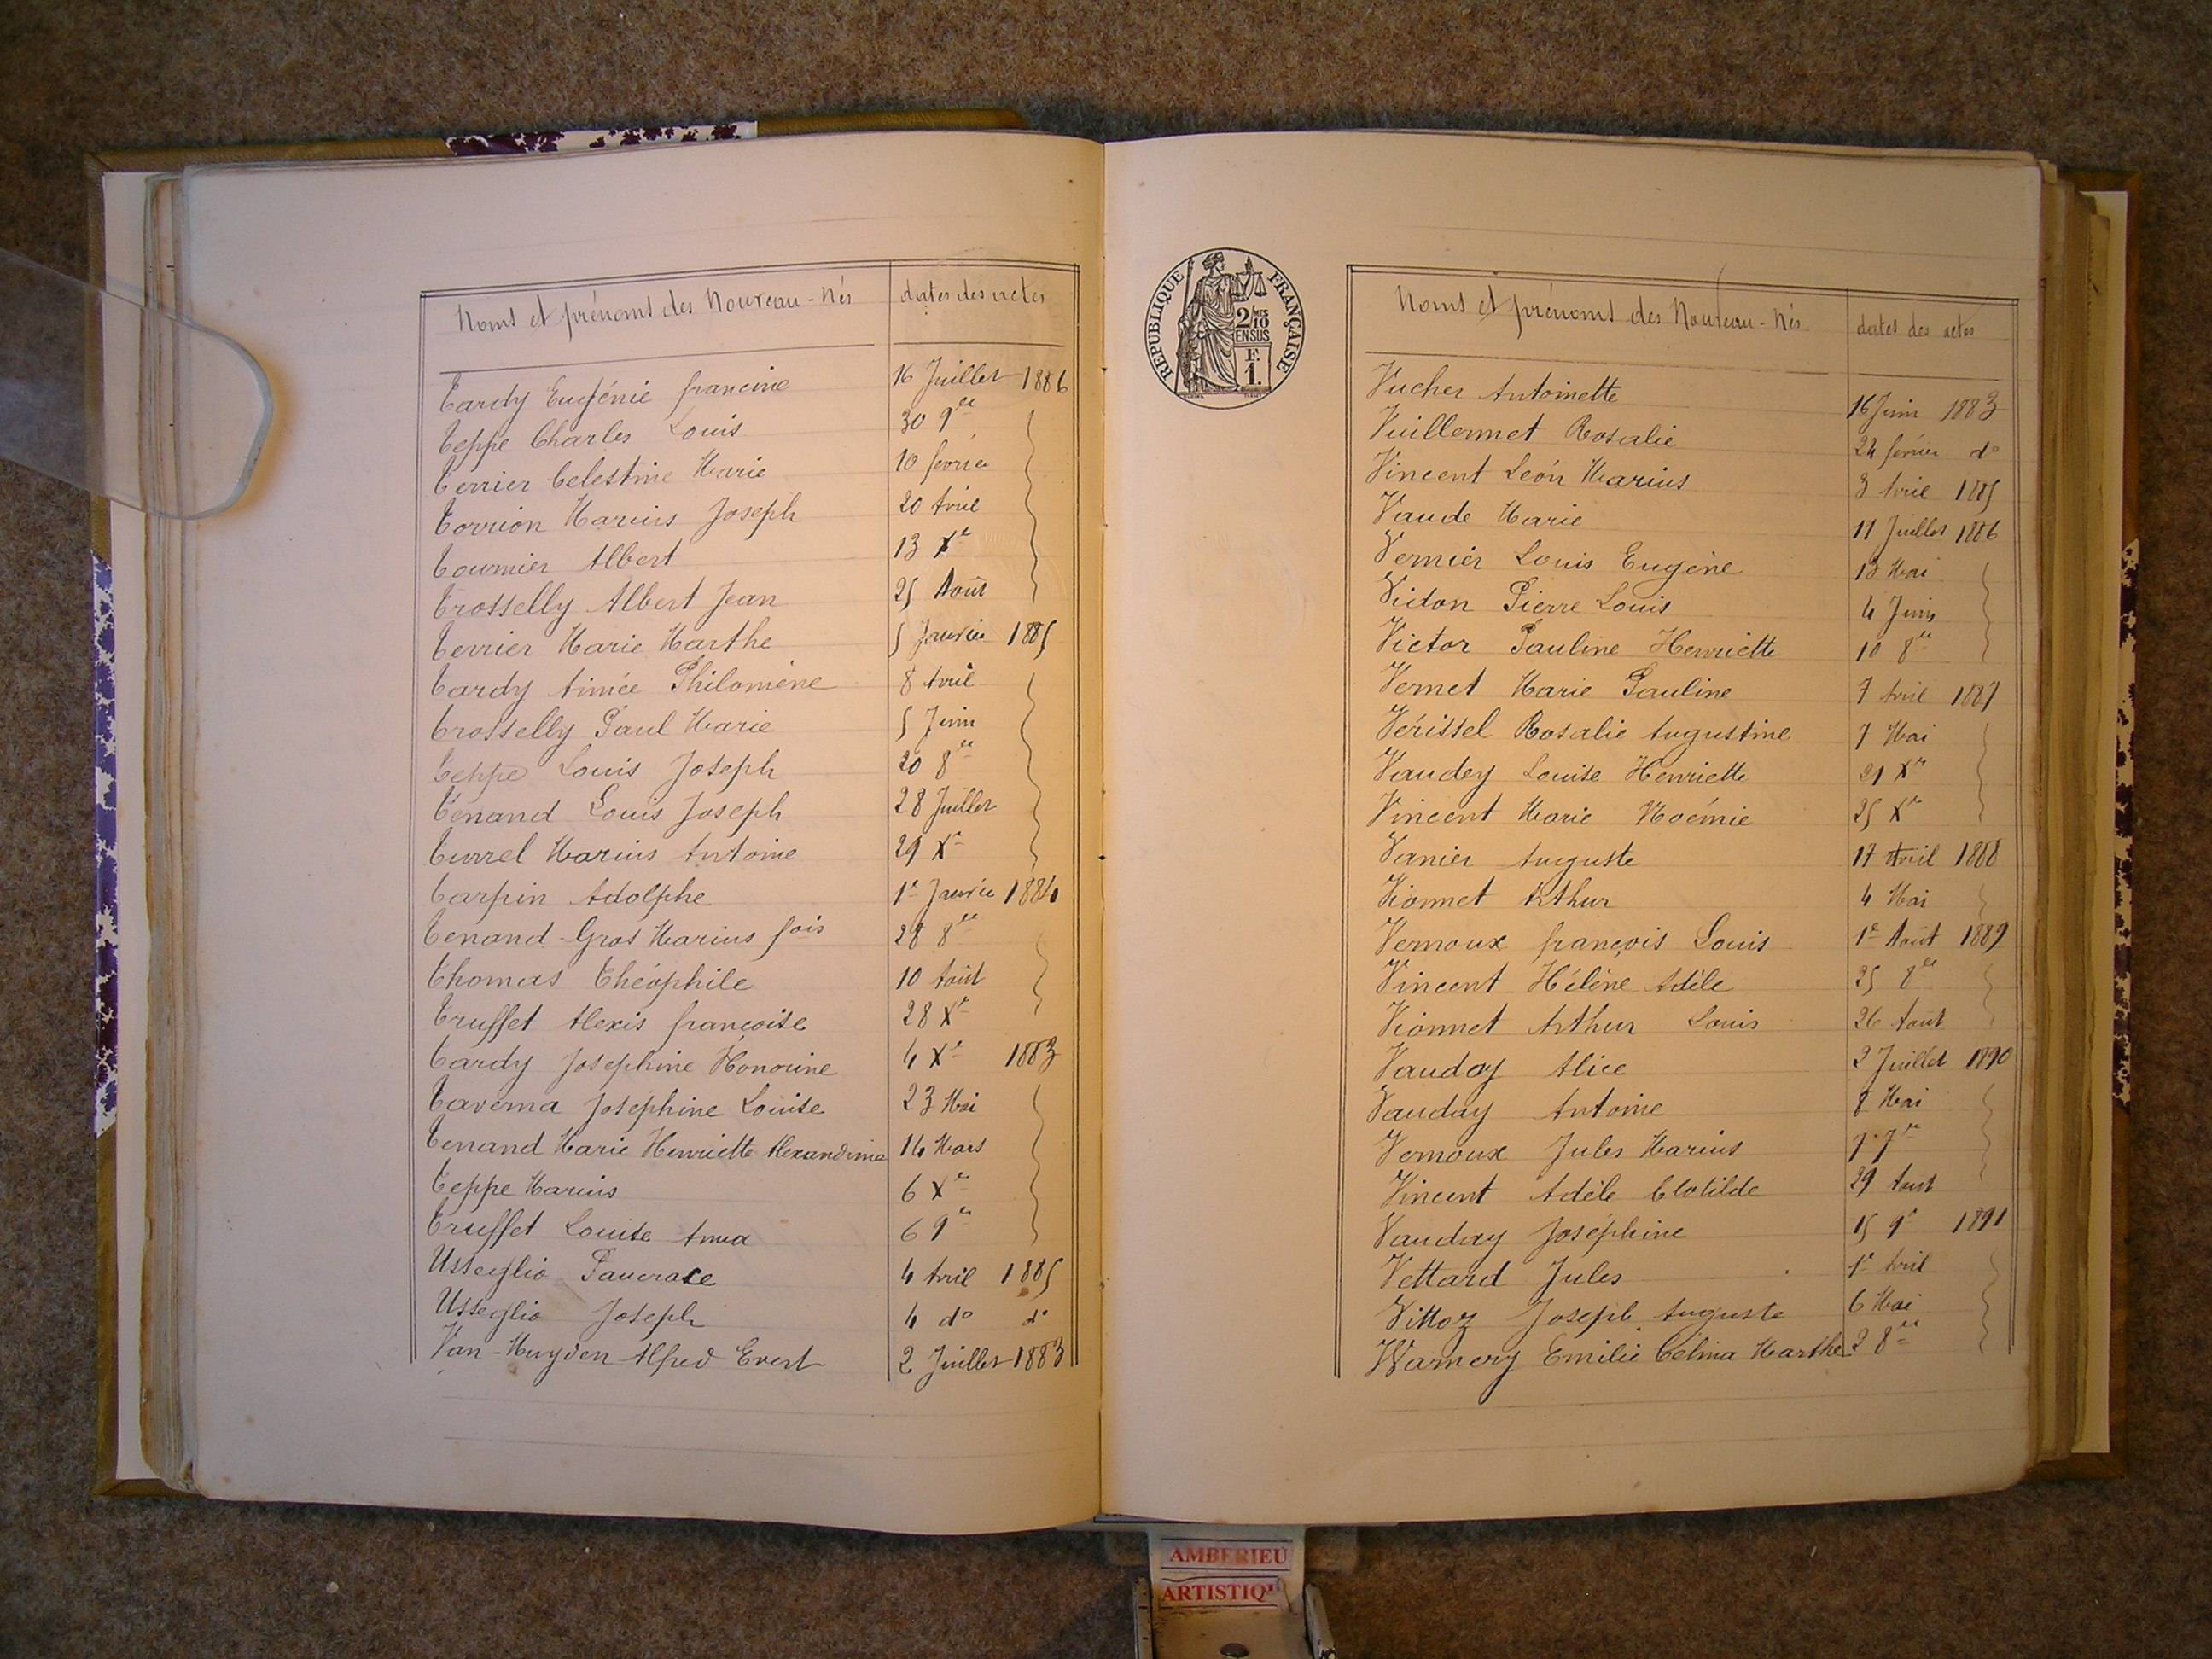 Noms et prénoms des Nouveau-Nés dates des actes
Tardy Eugénie francine 16 Juillet 1886
Teppe Charles Louis 30 9bre
Terrier Celestine Marie 10 fevrier
Torrion Marius Joseph 20 Avril
Tournier Albert 13 Xe
Trosselly Albert Jean 25 Août
Terrier Marie Marthe 5 Janvier 1885
Tardy Aimée Philomène 8 Avril
Trosselly Paul Marie 5 Juin
Teppe Louis Joseph 20 8bre
Tenand Louis Joseph 28 Juillet
Turrel Marius Antoine 29 Xe
Tarpin Adolphe 1er Janvier 1884
Tenand-Gros Marius fois 28 8bre
Thomas Théophile 10 Août
Truffet Alexis françoise 28 Xe
Tardy Joséphine Honorine 4 Xe 1883
Taverna Joséphine Louise 23 Mai
Tenand Marie Henriette Alexandrine 14 Mars
Teppe Marius 6 Xe
Truffet Louise Anna 6 9bre
Usseglio Pancrace 4 Avril 1885
Usseglio Joseph 4 do do
Van-Huyden Alfred Evert 2 Juillet 1883
REPUBLIQUE FRANÇAISE
2/10
EN SUS
F.
1.
Noms et prénoms des Nouveau-Nés dates des actes
Vucher Antoinette 16 Juin 1883
Vuillermet Rosalie 24 février do
Vincent Léon Marius 3 Avril 1885
Vaude Marie 11 Juillet 1886
Vernier Louis Eugène 13 Mai
Vidon Pierre Louis 4 Juin
Victor Pauline Henriette 10 8bre
Vernet Marie Pauline 7 Avril 1887
Vérissel Rosalie Augustine 7 Mai
Vaudey Louise Henriette 21 Xe
Vincent Marie Noémie 25 Xe
Vanier Auguste 17 Avril 1888
Vionnet Arthur 4 Mai
Vernoux françois Louis 1er Août 1889
Vincent Hélène Adèle 25 8bre
Vionnet Arthur Louis 26 Août
Vauday Alice 2 Juillet 1890
Vauday Antoine 8 Mai
Vernoux Jules Marius 7 7bre
Vincent Adèle Clotilde 29 Août
Vauday Joséphine 15 9e 1891
Vettard Jules 1er Avril
Vittoz Joseph Auguste 6 Mai
Warnery Emilie Celina Marthe 2 8bre
AMBERIEU
ARTISTIQU